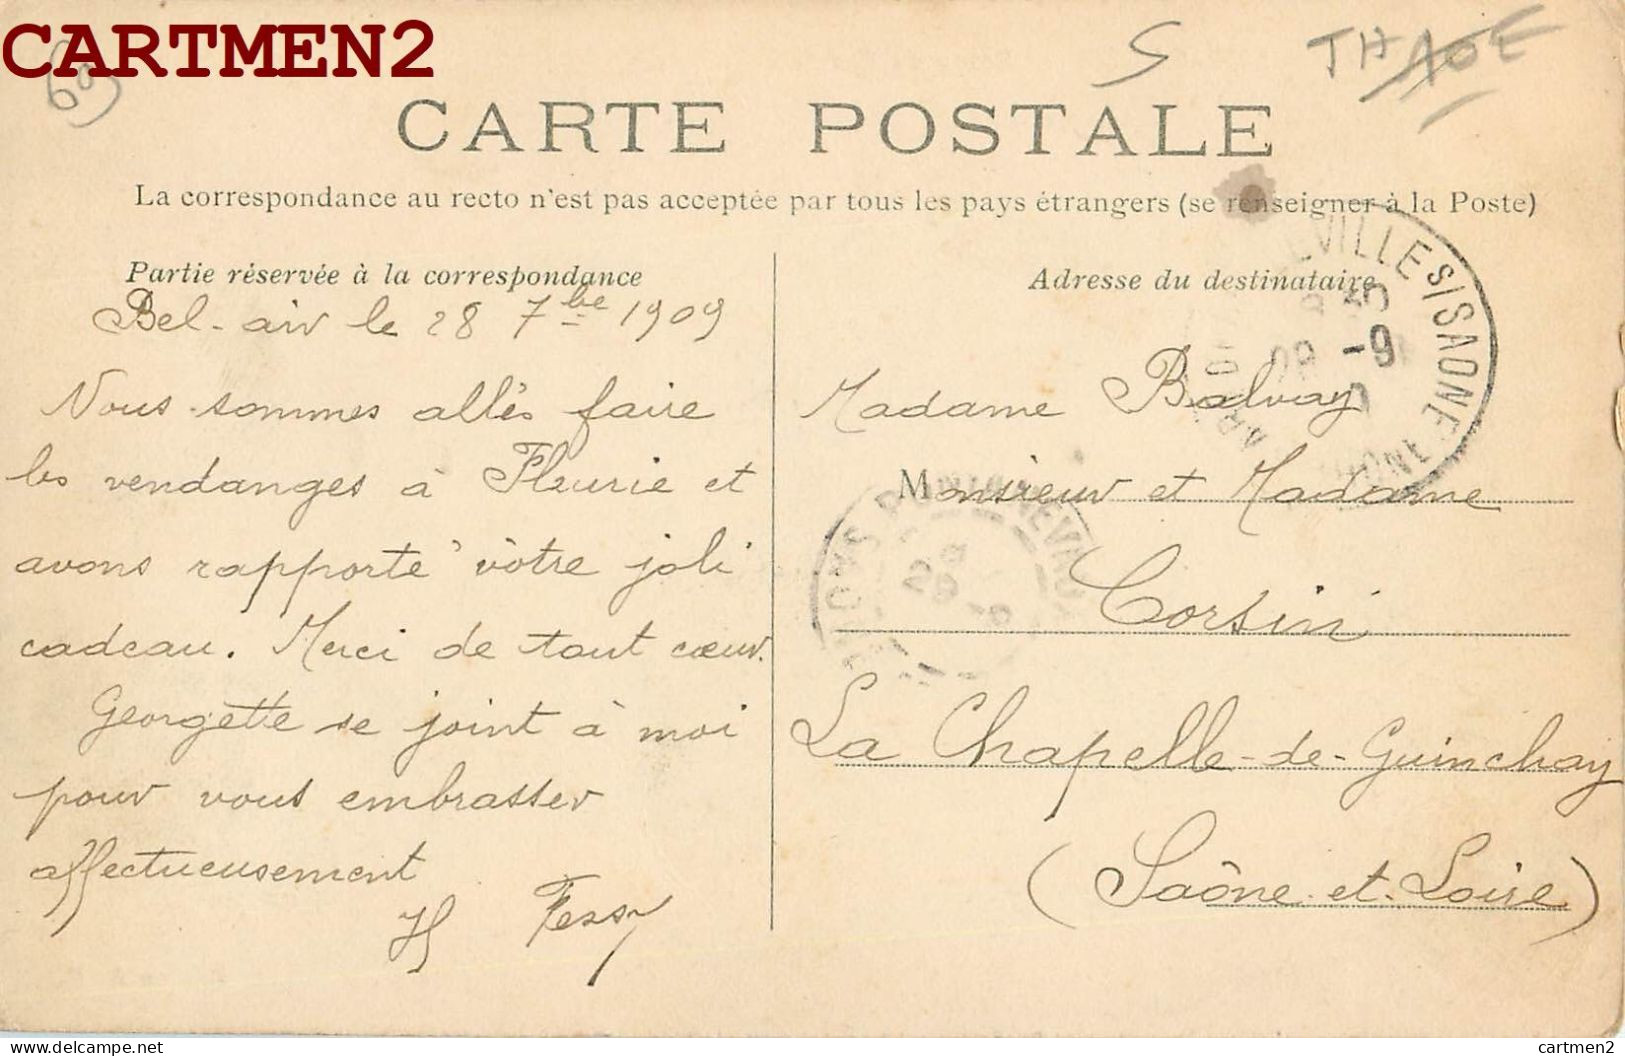 CARTMEN2
69
S
THAOE
CARTE POSTALE
La correspondance au recto n'est pas acceptée par tous les pays étrangers (se renseigner à la Poste)
Partie réservée à la correspondance
Bel-air le 28 7bre 1909
Nous sommes allés faire
les vendanges à Fleurie et
avons rapporté vôtre joli
cadeau. Merci de tout cœur.
Georgette se joint à moi
pour vous embrasser
affectueusement
H Fessy
Adresse du destinataire
Madame Balvay
Monsieur et Madame
Corsin
La Chapelle-de-Guinchay
(Saône-et-Loire)
LVILLE S/ SAONE
30
-9
cartmen2 https://www.delcampe.net
cartmen2